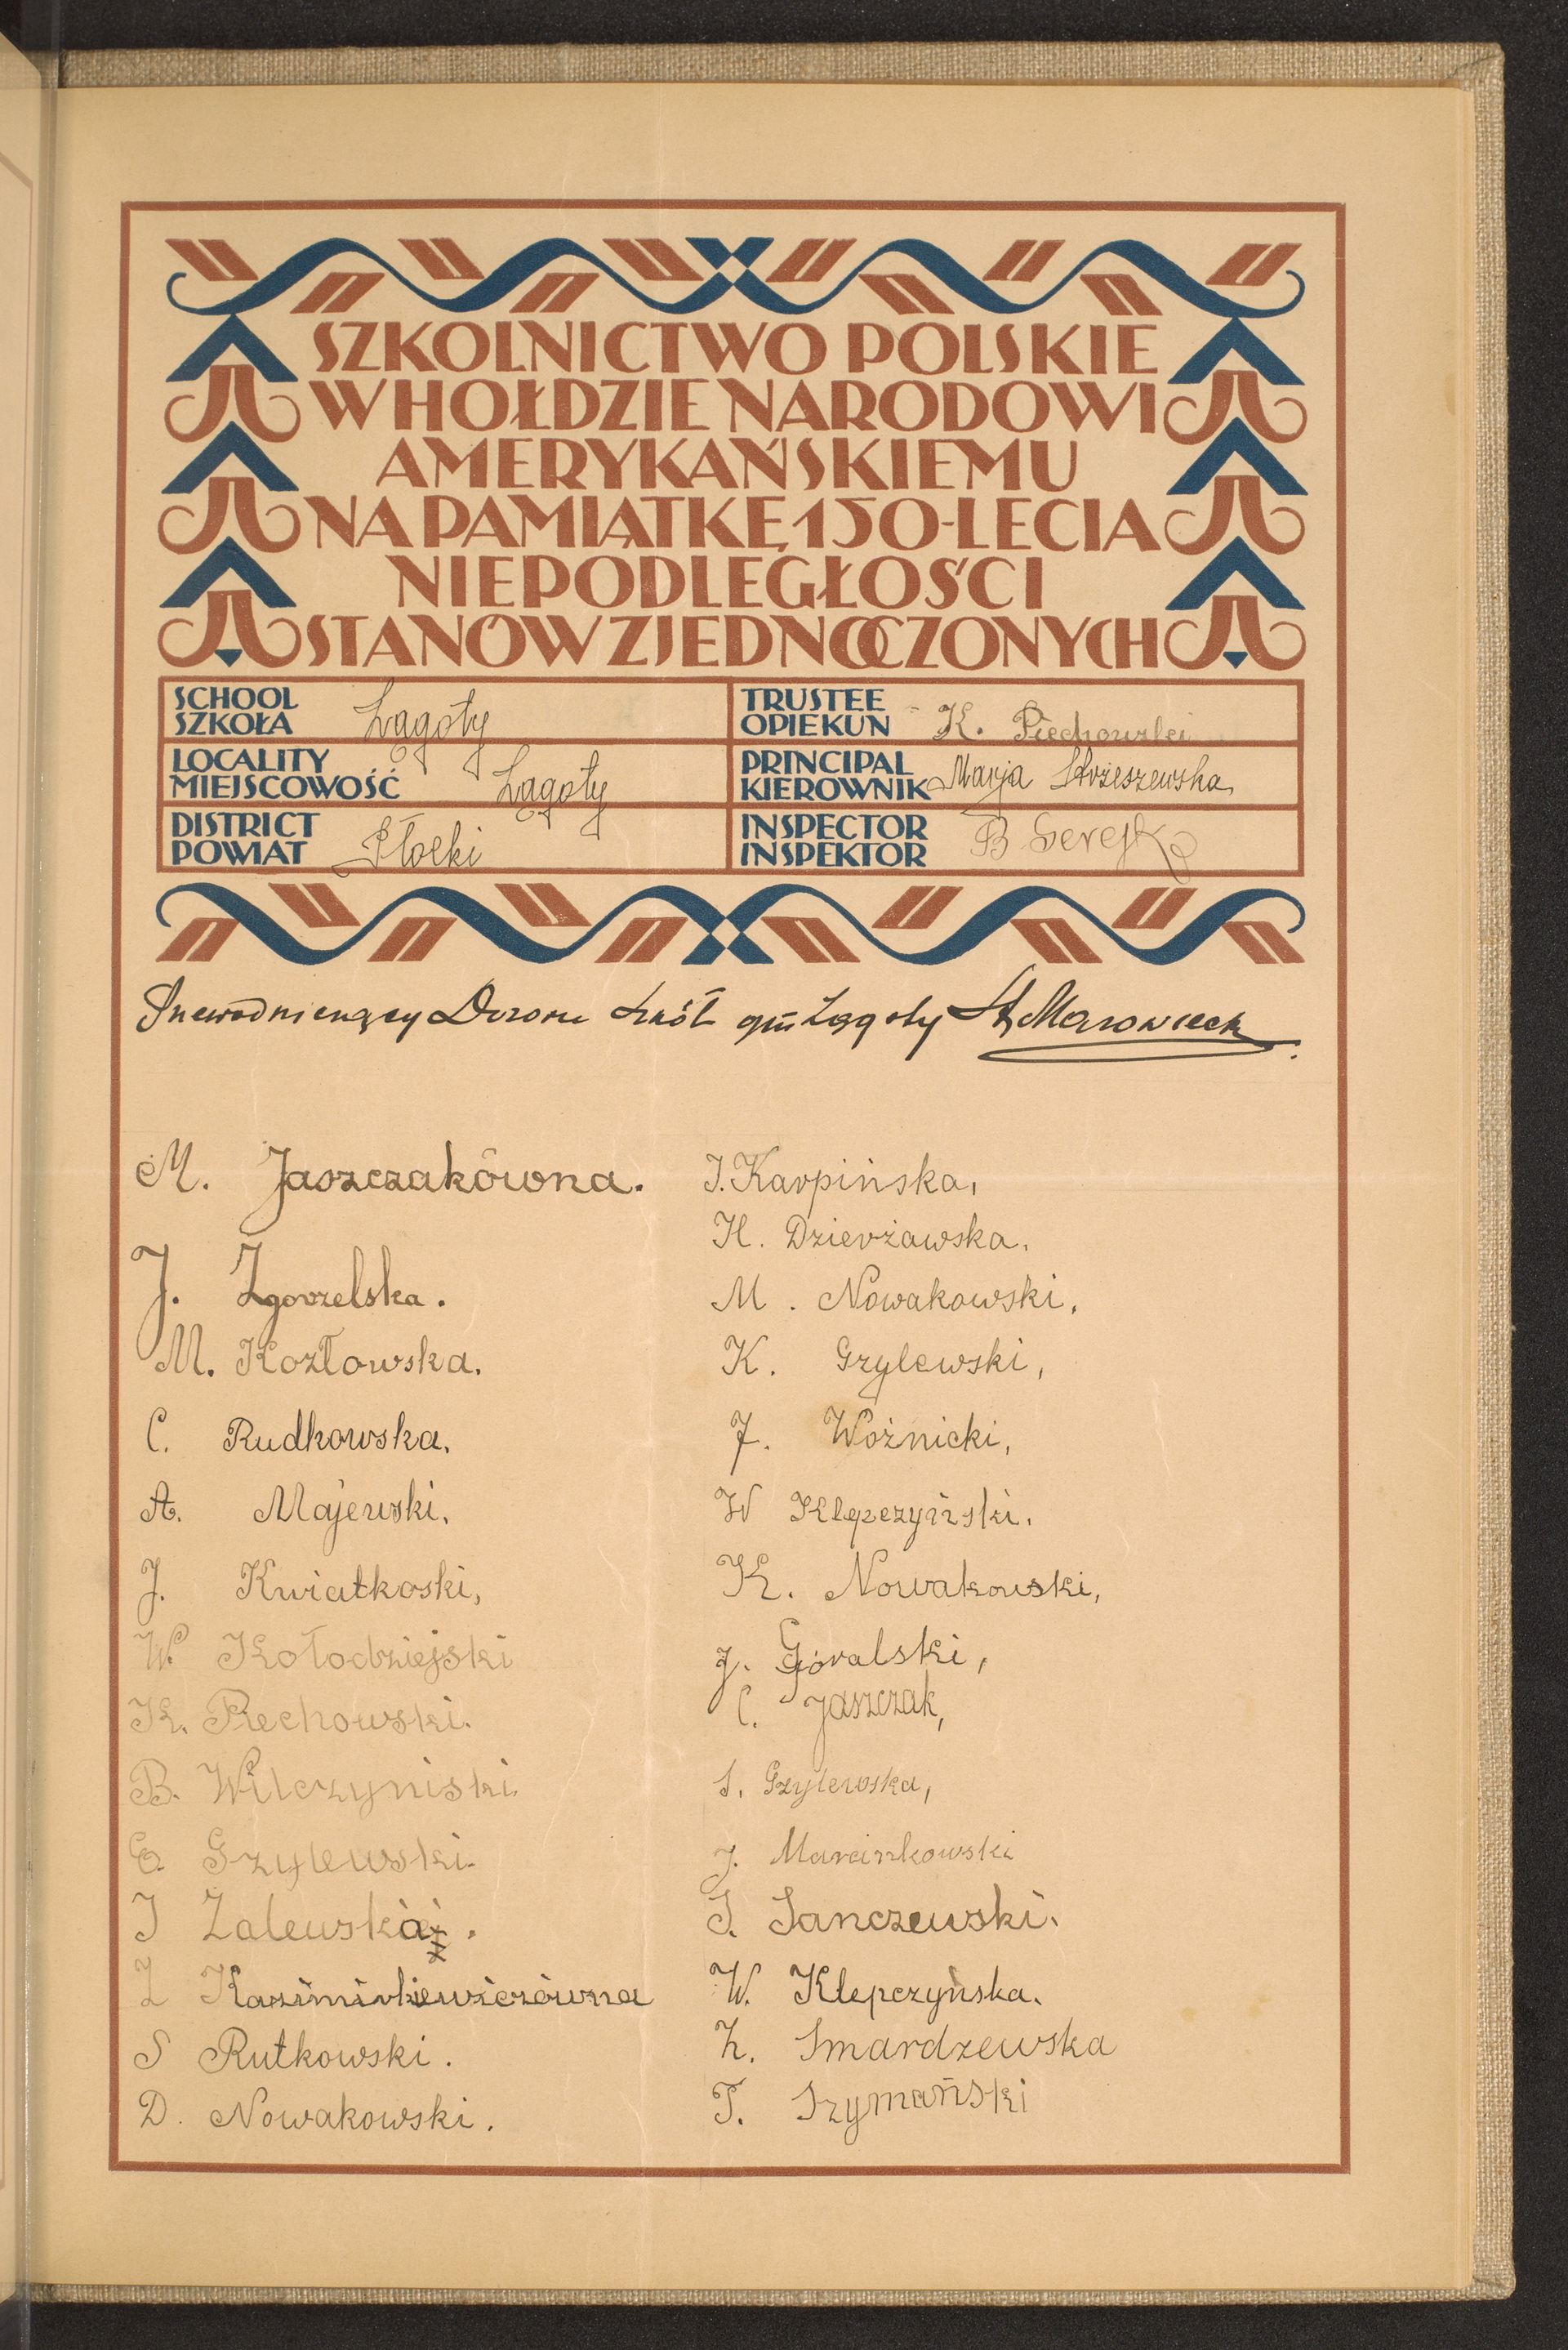 SZKOLNICTWO POLSKIE
W HOŁDZIE NARODOWI
AMERYKAŃSKIEMU
NA PAMIĄTKĘ 150-LECIA
NIEPODLEGŁOŚCI
STANÓW ZJEDNOCZONYCH
SCHOOL
SZKOŁA Łągoty
TRUSTEE
OPIEKUN K. Piechowski
LOCALITY
MIEJSCOWOŚĆ Łągoty
PRINCIPAL
KIEROWNIK Marja Strzeszewska
DISTRICT
POWIAT Płocki
INSPECTOR
INSPEKTOR B
Szkół gm Łągoty
M. Jaszczakówna.
J. Zgorzelska.
M. Kozłowska.
C. Rudkowska.
A. Majewski.
J. Kwiatkoski,
W. Kołodziejski
K. Piechowski.
B. Wilczyniski.
G. Gzylewski.
J Zalewska.
Z Kazimirkiewiczówna
S Rutkowski.
D. Nowakowski.
J. Karpińska,
H. Dzierżawska.
M. Nowakowski,
K. Gzylewski,
F. Woźnicki,
W Klepczyński.
K. Nowakowski,
J. Góralski,
C. Jaszczak,
S. Gzylewska,
J. Marcinkowski
S. Janczewski.
W. Klepczyńska.
Z. Smardzewska
T. Szymański